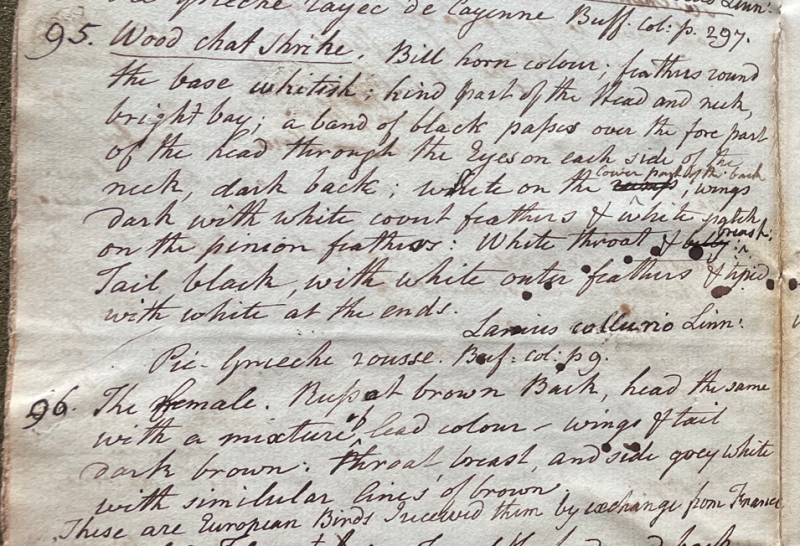 Grieche rayée de Cayenne Buff: col: p. 297. Linn:
95. Wood chat Shrike. Bill horn colour; feathers round
the base whitish; hind part of the Head and neck,
bright bay; a band of black passes over the fore part
of the head through the Eyes on each side of the
neck, dark back; white on the rump lower part of the back; wings
dark with white covert feathers & white patch
on the pinion feathers: White throat & belly breast:
Tail black, with white outer feathers & tiped
with white at the ends.
Lanius collurio Linn:
Pie-Grieche rousse. Buf: col: p 9.
96. The female. Rusat brown Back, head the same
with a mixture of lead colour - wings & tail
dark brown: throat, breast, and side grey white
with similular lines of brown.
These are European Birds I received them by exchange from France